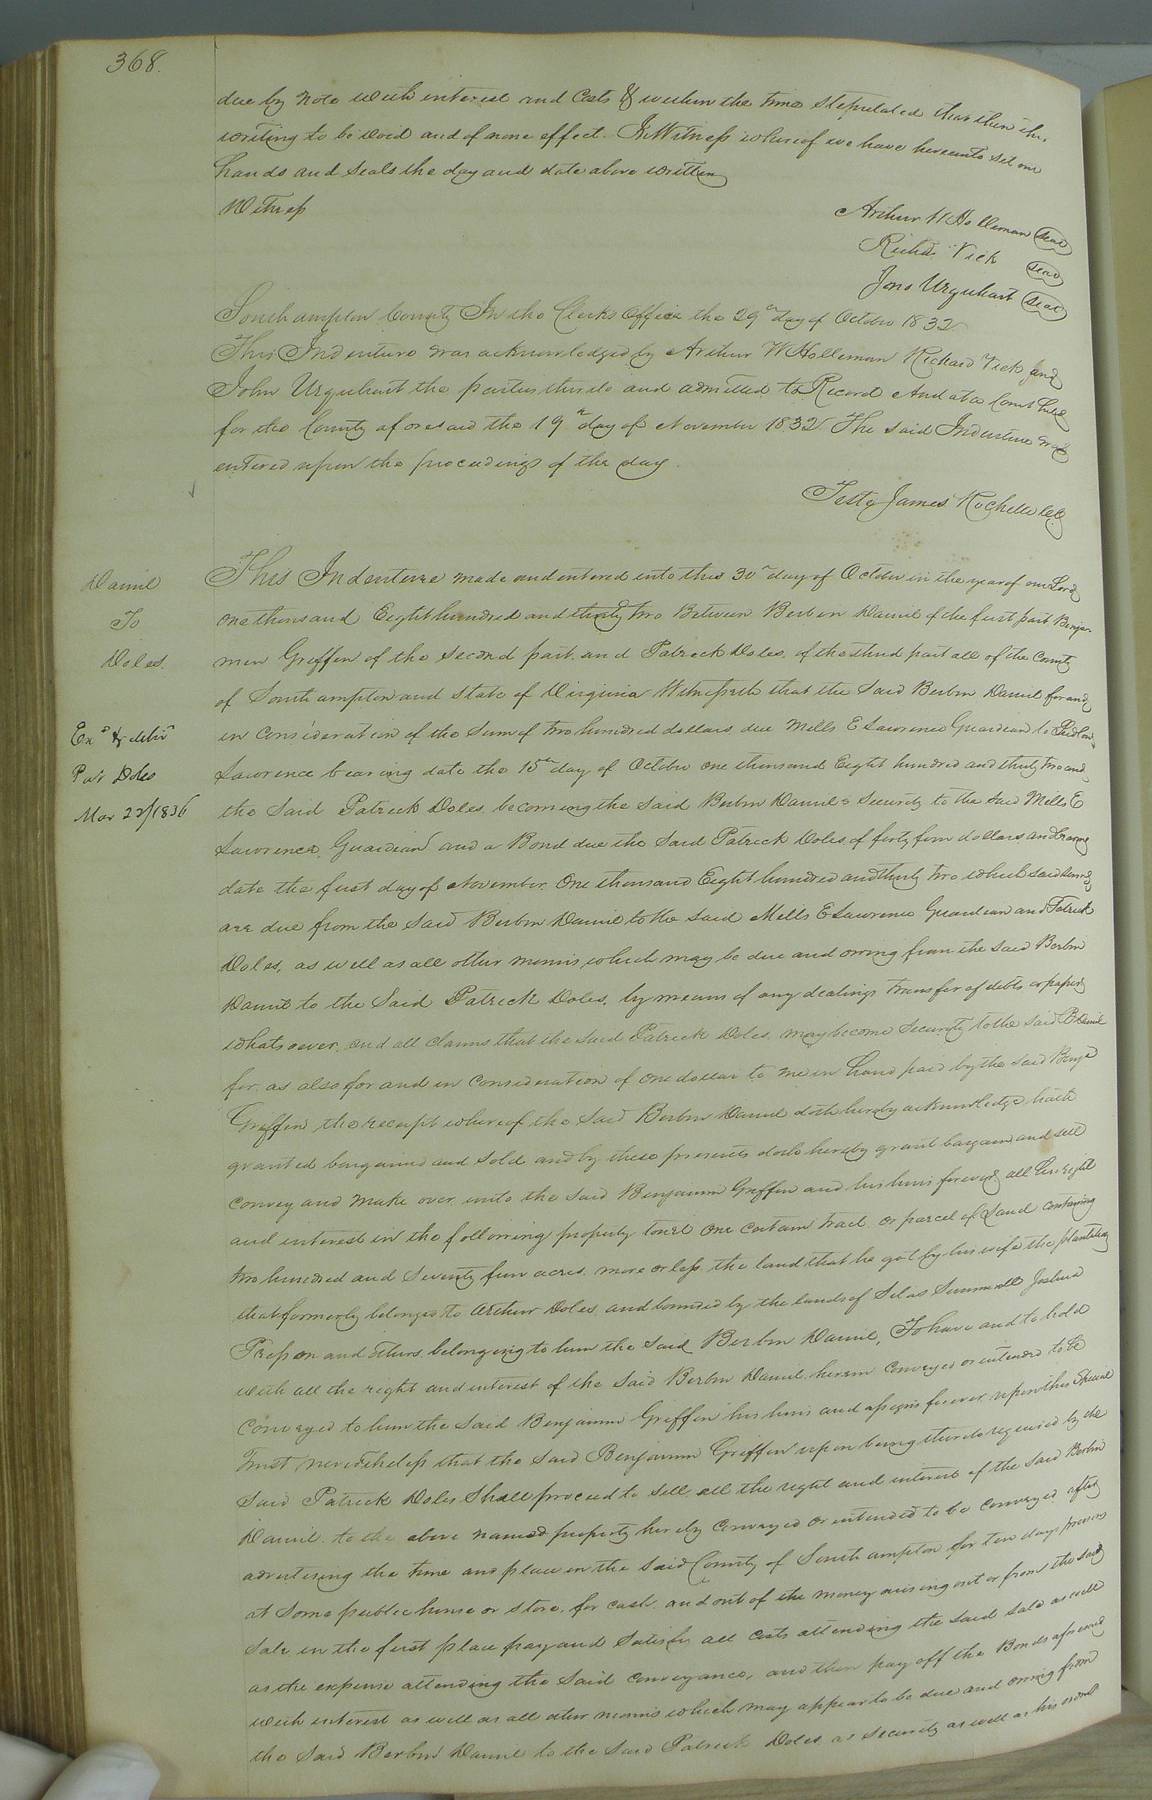 368.
due by note with interest and Costs & within the time stipulated that then this
writing to be void and of none effect. In Witness whereof we have hereunto set our
hands and seals the day and date above written
Witness
Arthur W Holleman seal
Richd Vick seal
Jno Urquhart seal
Southampton County In the Clerks Office the 29th day of October 1832
This Indenture was acknowledged by Arthur W Holleman Richard Vick and
John Urquhart the parties thereto and admitted to Record And at a Court held
for the County aforesaid the 19th day of November 1832 The said Indenture was
entered upon the proceedings of the day.
Teste James Rochelle CC
Daniel
To
Doles.
Exd & delivd
Pat Doles
Mar 22/1836
This Indenture made and entered into this 30th day of October in the year of our Lord
one thousand Eight hundred and thirty two Between Berbin Daniel of the first part Benja
min Griffin of the second part and Patrick Doles of the third part all of the County
of Southampton and State of Virginia Witnesseth that the said Berbin Daniel for and
in Consideration of the Sum of two hundred dollars due Mills E Lawrence Guardian to
Lawrence bearing date the 15th day of October one thousand Eight hundred and thirty two and
the said Patrick Doles becoming the said Berbin Daniels Security to the said Mills E
Lawrence Guardian and a Bond due the said Patrick Doles of forty four dollars and bearing
date the first day of November One thousand Eight hundred and thirty two which said
are due from the said Berbin Daniel to the said Mills E Lawrence Guardian and Patrick
Doles, as well as all other monies which may be due and owing from the said Berbin
Daniel to the Said Patrick Doles, by means of any dealings transfer of debts or papers
whatsoever and all claims that the said Patrick Doles may become Security to the said B Daniel
for, as also for and in Consideration of one dollar to me in hand paid by the said Benja
Griffin the receipt whereof the said Berbin Daniel doth hereby acknowledge hath
granted bargained and sold and by these presents doth hereby grant bargain and sell
convey and make over unto the said Benjamin Griffin and his heirs forever all his right
and interest in the following property towit One certain tract or parcel of Land containing
two hundred and Seventy four acres more or less the land that he got by his wife the plantation
that formerly belonged to Arthur Doles and bounded by the lands of Silas Summerell Joshua
Presson and others belonging to him the said Berbin Daniel, To have and to hold
with all the right and interest of the Said Berbin Daniel herein Conveyed or intended to be
Conveyed to him the said Benjamin Griffin his heirs and assigns forever upon this Special
Trust nevertheless that the said Benjamin Griffin upon being thereto required by the
Said Patrick Doles Shall proceed to sell all the right and interest of the said Berbin
Daniel to the above named property hereby Conveyed or intended to be Conveyed after
advertising the time and place in the said County of Southampton for ten days previous
at some public house or store, for cash and out of the money arising out or from the said
Sale in the first place pay and satisfy all costs attending the said sale as well
as the expense attending the said conveyance, and then pay off the Bonds aforesaid
with interest as well as all other monies which may appear to be due and owing from
the said Berbin Daniel to the said Patrick Doles as Security as well as his own